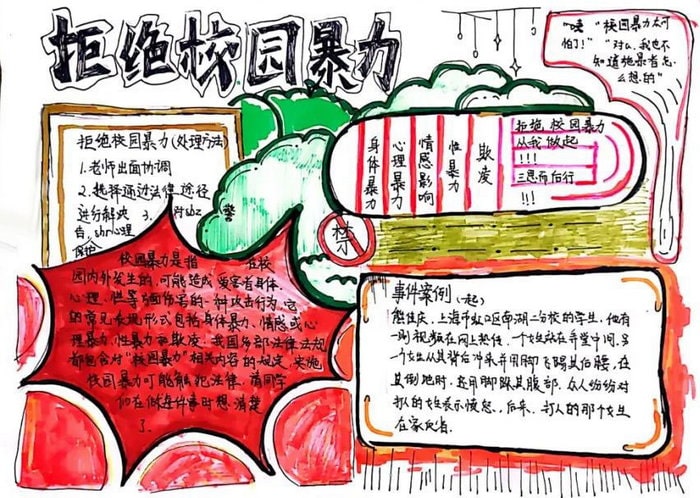 拒绝校园暴力
"唉" "校园暴力太可
怕了！" "对么，我也不
知道施暴者怎
么想的"
拒绝校园暴力（处理方法）
1.老师出面协调
2.选择通过法律途径
进行解决 3.
身体暴力
心理暴力
情感影响
性暴力
欺凌
拒绝校园暴力
从我做起
!!!
三思而后行
!!!
警
禁
校园暴力是指 在校
园内外发生的，可能造成受害者身体、
心理、性等方面伤害的一种攻击行为，它
的常见表现形式包括身体暴力、情感或心
理暴力、性暴力和欺凌，我国多部法律法规
都包含对"校园暴力"相关内容的规定，实施
校园暴力可能触犯法律，请同学
们在做每件事时想清楚
了.
事件案例（一起）
上海市虹口区南湖二分校的学生，他有
一则视频在网上热传，一个女生站在弄堂中间，另
一个女生从其背后冲来并用脚飞踢其后腰，在
其倒地时，还用脚踩其腹部，众人纷纷对
打人的女生表示愤怒，后来，打人的那个女生